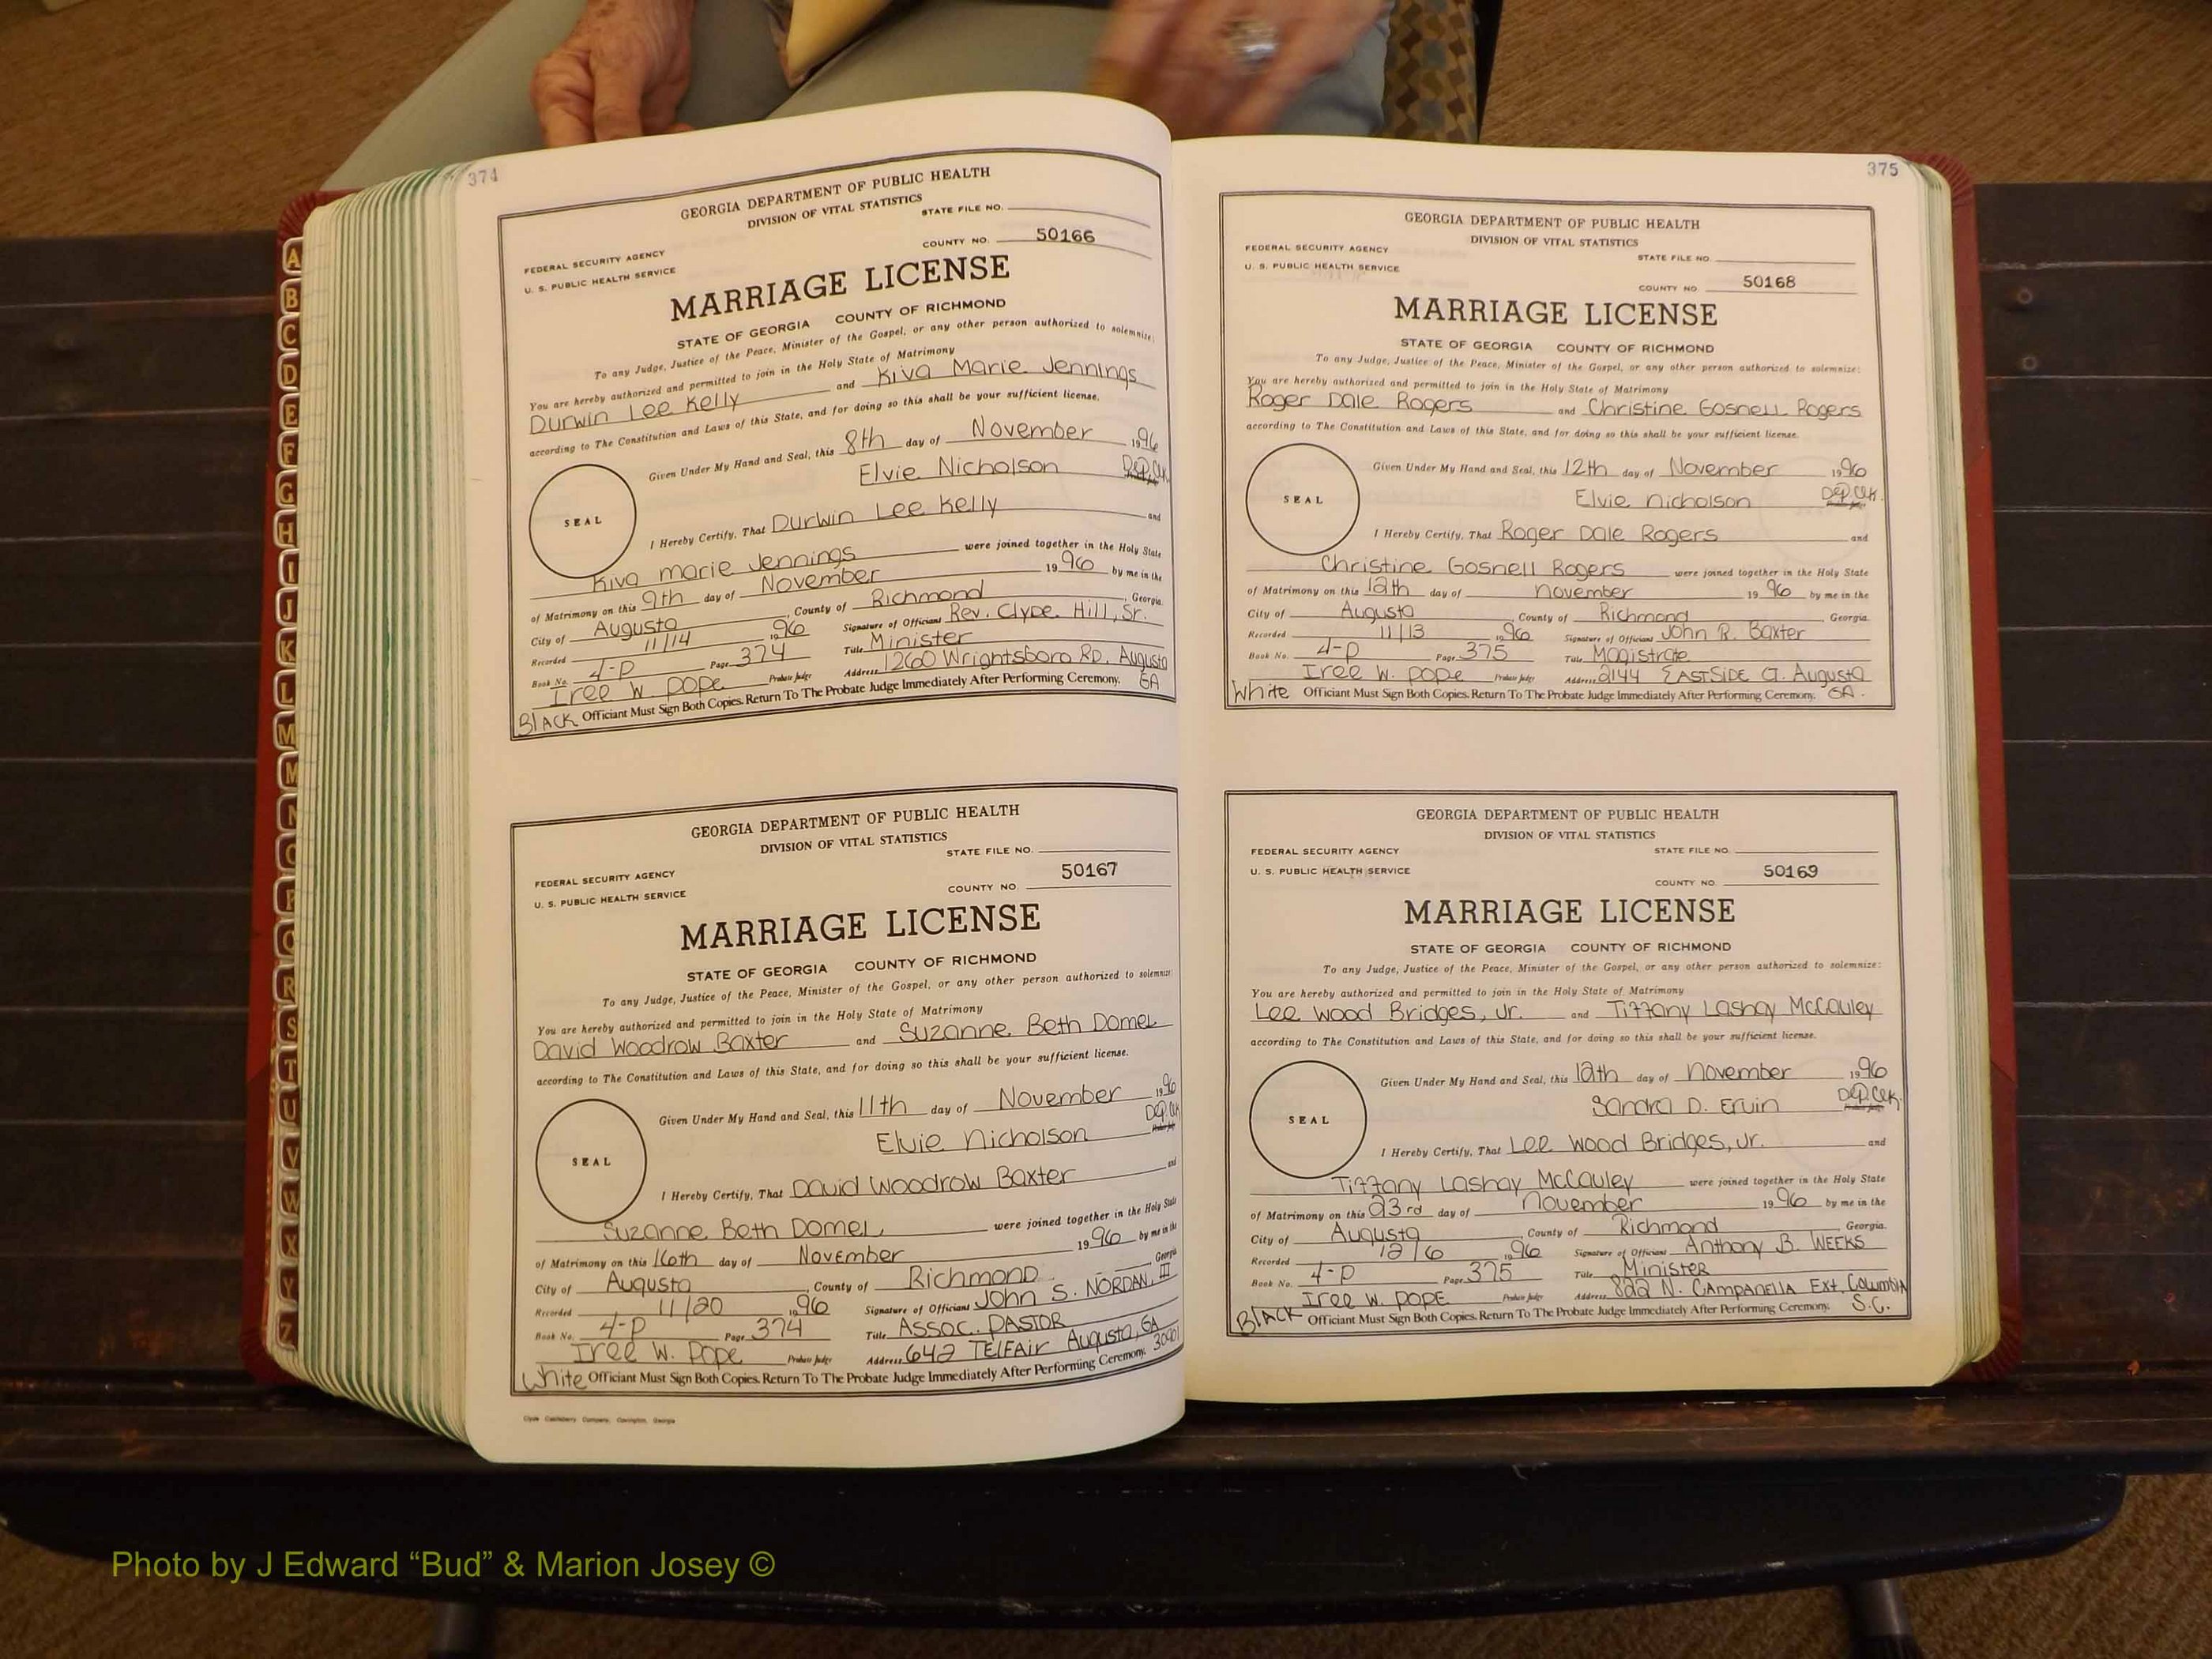 374
GEORGIA DEPARTMENT OF PUBLIC HEALTH
DIVISION OF VITAL STATISTICS
STATE FILE NO.
FEDERAL SECURITY AGENCY
COUNTY NO. 50166
U. S. PUBLIC HEALTH SERVICE
MARRIAGE LICENSE
STATE OF GEORGIA COUNTY OF RICHMOND
To any Judge, Justice of the Peace, Minister of the Gospel, or any other person authorized to solemnize:
You are hereby authorized and permitted to join in the Holy State of Matrimony
Durwin Lee Kelly and Kiva Marie Jennings
according to The Constitution and Laws of this State, and for doing so this shall be your sufficient license.
Given Under My Hand and Seal, this 8th day of November 1996
Elvie Nicholson Dep. Clk.
SEAL
I Hereby Certify, That Durwin Lee Kelly and
Kiva Marie Jennings were joined together in the Holy State
of Matrimony on this 9th day of November 1996 by me in the
City of Augusta, County of Richmond, Georgia.
Recorded 11/14 1996 Signature of Officiant Rev. Clyde Hill, Sr.
Book No. 4-P Page 374 Title Minister
Iree W. Pope Probate Judge Address 1260 Wrightsboro RD. Augusta
BLACK Officiant Must Sign Both Copies. Return To The Probate Judge Immediately After Performing Ceremony. GA
GEORGIA DEPARTMENT OF PUBLIC HEALTH
DIVISION OF VITAL STATISTICS
STATE FILE NO.
FEDERAL SECURITY AGENCY
COUNTY NO. 50167
U. S. PUBLIC HEALTH SERVICE
MARRIAGE LICENSE
STATE OF GEORGIA COUNTY OF RICHMOND
To any Judge, Justice of the Peace, Minister of the Gospel, or any other person authorized to solemnize:
You are hereby authorized and permitted to join in the Holy State of Matrimony
David Woodrow Baxter and Suzanne Beth Domel
according to The Constitution and Laws of this State, and for doing so this shall be your sufficient license.
Given Under My Hand and Seal, this 11th day of November 1996
Elvie Nicholson Dep. Clk
SEAL
I Hereby Certify, That David Woodrow Baxter and
Suzanne Beth Domel were joined together in the Holy State
of Matrimony on this 16th day of November 1996 by me in the
City of Augusta, County of Richmond, Georgia
Recorded 11/20 1996 Signature of Officiant John S. NORDAN, III
Book No. 4-P Page 374 Title Assoc. PASTOR
Iree W. Pope Probate Judge Address 642 TELFAIR Augusta, GA
White Officiant Must Sign Both Copies. Return To The Probate Judge Immediately After Performing Ceremony. 30901
Clyde Castleberry Company, Covington, Georgia
375
GEORGIA DEPARTMENT OF PUBLIC HEALTH
DIVISION OF VITAL STATISTICS
FEDERAL SECURITY AGENCY
STATE FILE NO.
U. S. PUBLIC HEALTH SERVICE
COUNTY NO. 50168
MARRIAGE LICENSE
STATE OF GEORGIA COUNTY OF RICHMOND
To any Judge, Justice of the Peace, Minister of the Gospel, or any other person authorized to solemnize:
You are hereby authorized and permitted to join in the Holy State of Matrimony
Roger Dale Rogers and Christine Gosnell Rogers
according to The Constitution and Laws of this State, and for doing so this shall be your sufficient license.
Given Under My Hand and Seal, this 12th day of November 1996
Elvie Nicholson Dep. Clk.
SEAL
I Hereby Certify, That Roger Dale Rogers and
Christine Gosnell Rogers were joined together in the Holy State
of Matrimony on this 12th day of November 1996 by me in the
City of Augusta, County of Richmond, Georgia.
Recorded 11/13 1996 Signature of Officiant John R. Baxter
Book No. 4-P Page 375 Title Magistrate
Iree W. Pope Probate Judge Address 2144 EASTSIDE Ct. Augusta
White Officiant Must Sign Both Copies. Return To The Probate Judge Immediately After Performing Ceremony. GA.
GEORGIA DEPARTMENT OF PUBLIC HEALTH
DIVISION OF VITAL STATISTICS
FEDERAL SECURITY AGENCY
STATE FILE NO.
U. S. PUBLIC HEALTH SERVICE
COUNTY NO. 50169
MARRIAGE LICENSE
STATE OF GEORGIA COUNTY OF RICHMOND
To any Judge, Justice of the Peace, Minister of the Gospel, or any other person authorized to solemnize:
You are hereby authorized and permitted to join in the Holy State of Matrimony
Lee Wood Bridges, Jr. and Tiffany Lashay McCauley
according to The Constitution and Laws of this State, and for doing so this shall be your sufficient license.
Given Under My Hand and Seal, this 12th day of November 1996
Sandra D. Ervin Dep. Clk.
SEAL
I Hereby Certify, That Lee Wood Bridges, Jr. and
Tiffany Lashay McCauley were joined together in the Holy State
of Matrimony on this 23rd day of November 1996 by me in the
City of Augusta, County of Richmond, Georgia.
Recorded 12/6 1996 Signature of Officiant Anthony B. WEEKS
Book No. 4-P Page 375 Title Minister
Iree W. POPE Probate Judge Address 822 N. CAMPANELLA Ext. Columbia
BLACK Officiant Must Sign Both Copies. Return To The Probate Judge Immediately After Performing Ceremony. S.C.
A
B
C
D
E
F
G
H
I
J
K
L
M
M
N
O
P
Q
R
S
T
U
V
W
X
Y
Z
Photo by J Edward “Bud” & Marion Josey ©